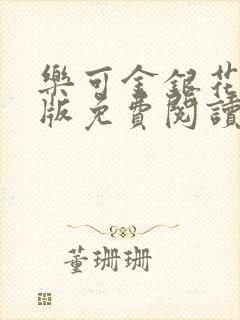 樂可金銀花
版免費閱讀
董珊珊